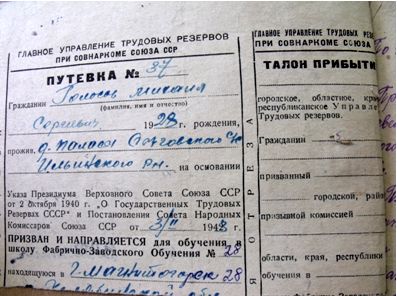 ГЛАВНОЕ УПРАВЛЕНИЕ ТРУДОВЫХ РЕЗЕРВОВ
ПРИ СОВНАРКОМЕ СОЮЗА ССР
ПУТЕВКА № 37
Гражданин Голосов Михаил
(фамилия, имя и отчество)
Сергеевич 1928 рождения,
прожив. д.
Ильинского рн. на основании
Указа Президиума Верховного Совета Союза ССР
от 2 октября 1940 г. „О Государственных Трудовых
Резервах СССР" и Постановления Совета Народных
Комиссаров Союза ССР от 3/II 194
ПРИЗВАН И НАПРАВЛЯЕТСЯ для обучения в
школу Фабрично-Заводского Обучения № 28
находящуюся в г. Магнитогорск 28
Челябинской обл.
ОТРЕЗА
ГЛАВНОЕ УПРАВЛЕНИЕ ТРУДОВЫХ РЕЗ
ПРИ СОВНАРКОМЕ СОЮЗА
ТАЛОН ПРИБЫТИ
городское, областное, крае
республиканское Управле
Трудовых резервов.
Гражданин
призванный
городской, рай
призывной комиссией
области, края, республики
обучения в